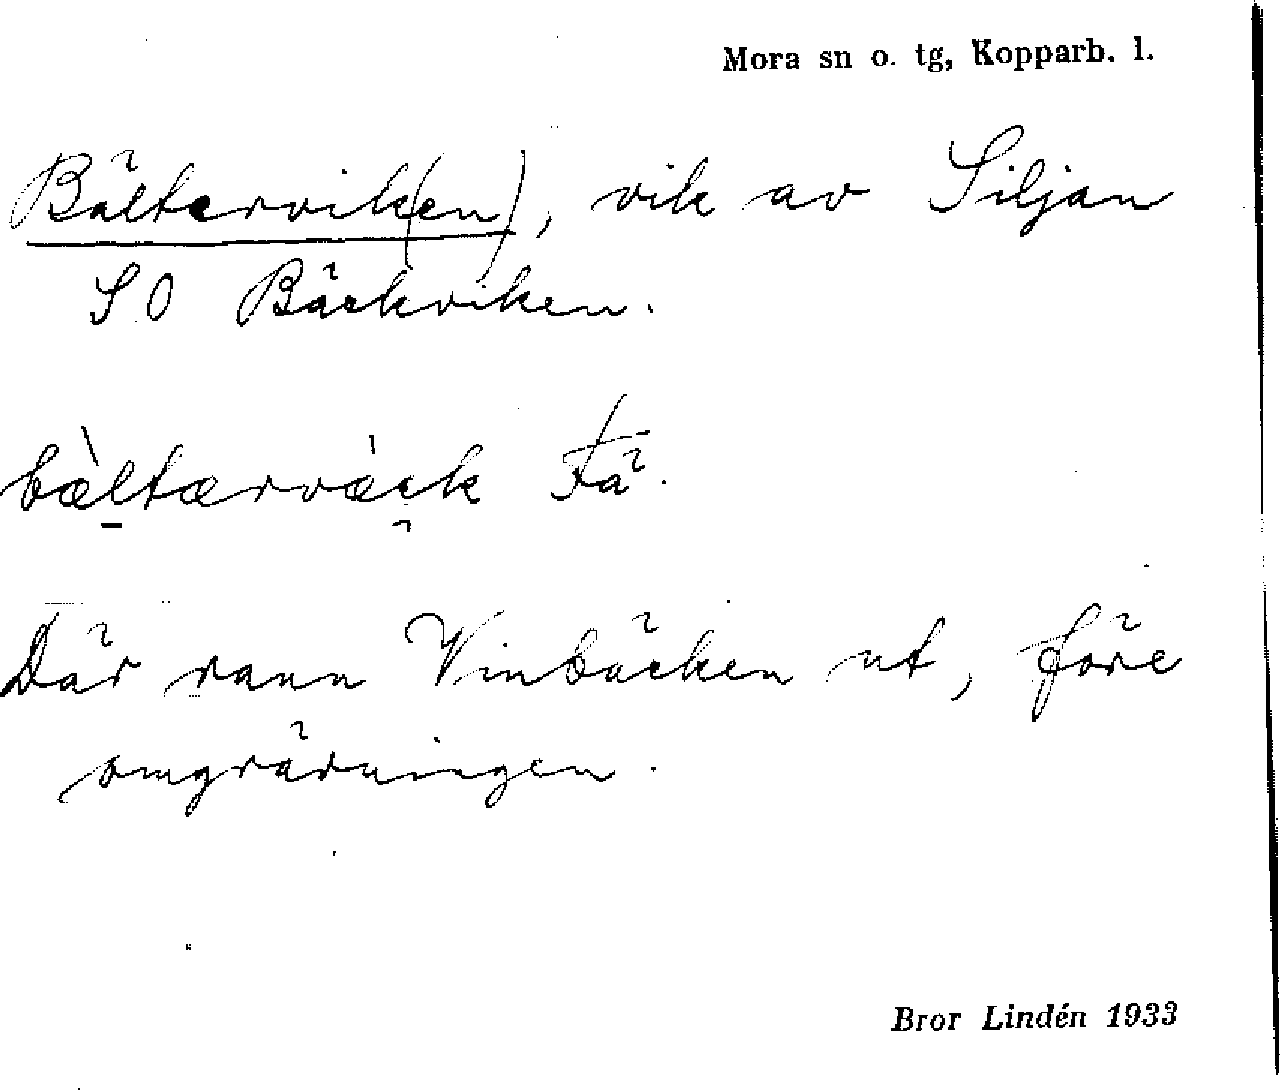 Mora sn o. tg, Kopparb. l.
Bältervik(en), vik av Siljan
SO Bäckviken.
bæ̀ltærvæck Fä.
Där rann Vinbäcken ut, före
omgrävningen.
Bror Lindén 1933